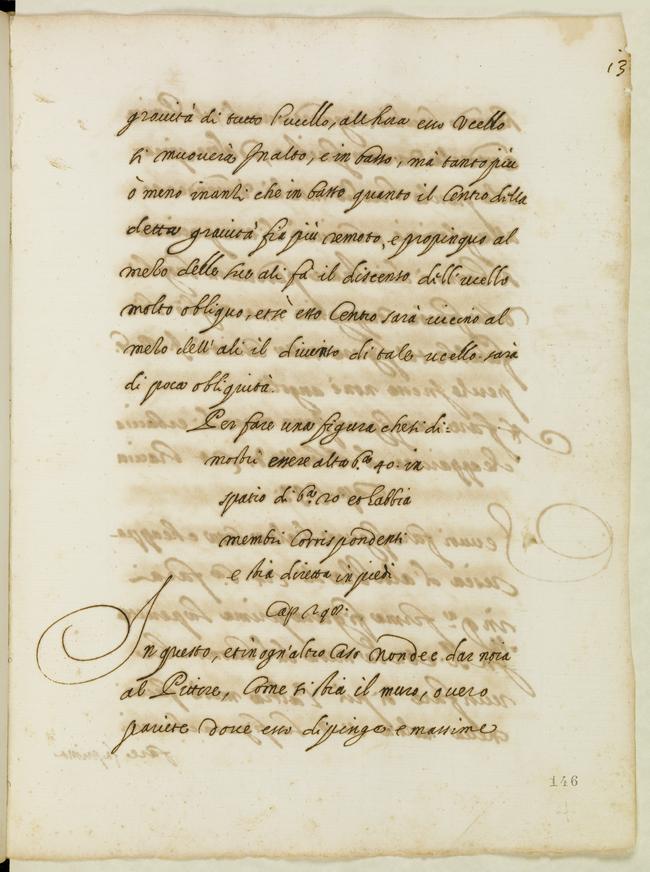 13
grauità di tutto l'ucello, all hora esso Vcello
si muouerà Inalto, e in basso, mà tanto più
ò meno inanti che in basso quanto il Centro della
detta grauità sia più remoto, e propinquo al
mezo delle sue ali fà il discenso dell'ucello
molto obliquo, et sè esso Centro sarà uicino al
mezo dell'ali il di tale ucello sarà
di poca obliquità.
Per fare una figura che si di=
mostri essere alta b.ª 40. in
spatio di b.ª 20 et habbia
membri Corrispondenti
e stia diretta in piedi
Cap.
In questo, et in ogn'altro Caso non dee dar noia
al Pittore, Come si stia il muro, ouero
pariete doue esso dipinge e massime
146